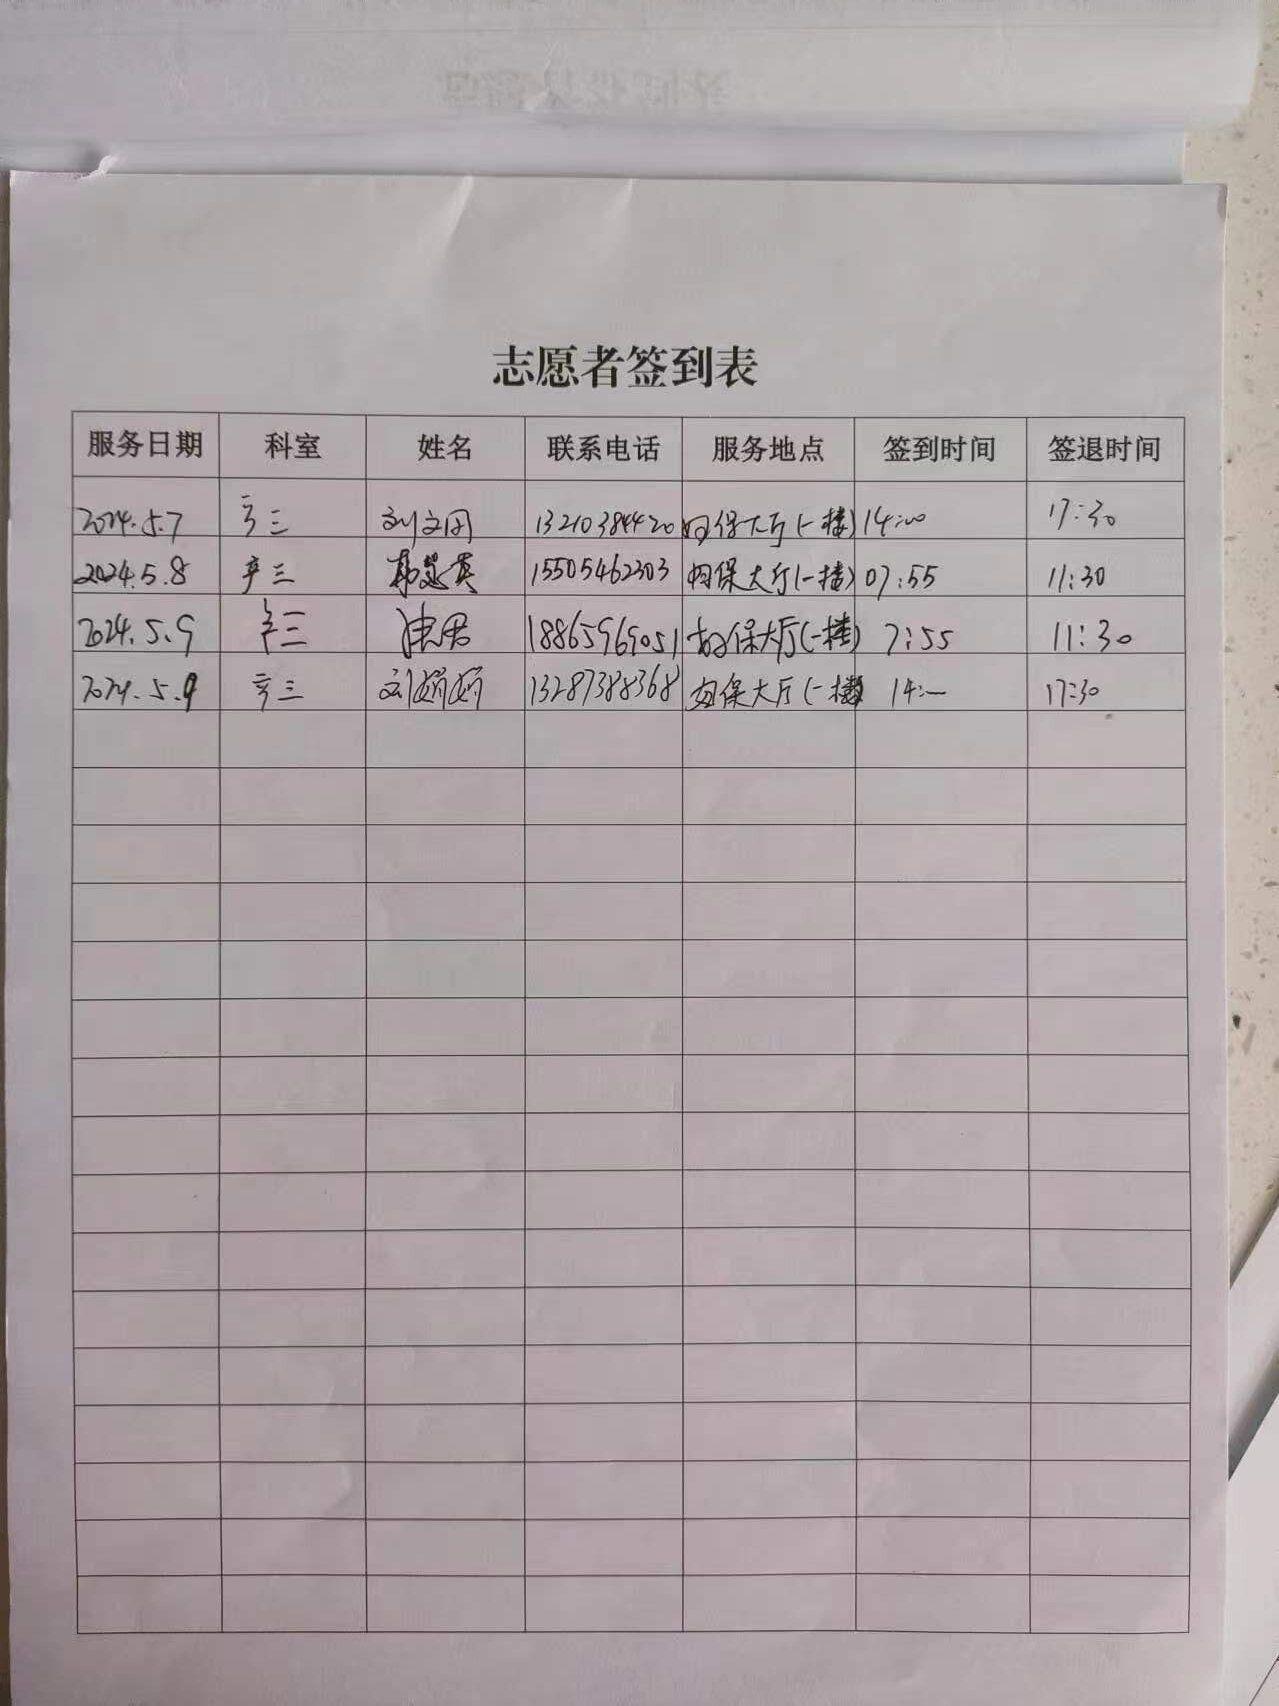 志愿者签到表
服务日期 科室 姓名 联系电话 服务地点 签到时间 签退时间
2024.5.7 三 刘文 13210384420 妇保大厅(一楼) 14:00 17:30
2024.5.8 产三 英 15505462303 妇保大厅(一楼) 07:55 11:30
2024.5.9 产三 君 18865969051 妇保大厅(一楼) 7:55 11:30
2024.5.9 三 刘娇娇 13287388368 妇保大厅(一楼) 14:— 17:30